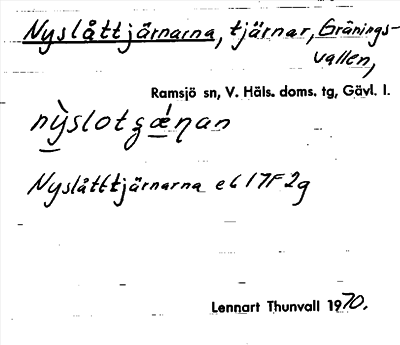 Nyslåttjärnarna, tjärnar, Gränings-
vallen,
Ramsjö sn, V. Häls. doms. tg, Gävl. l.
Nyslåtttjärnarna ek 17F2g
Lennart Thunvall 1970.